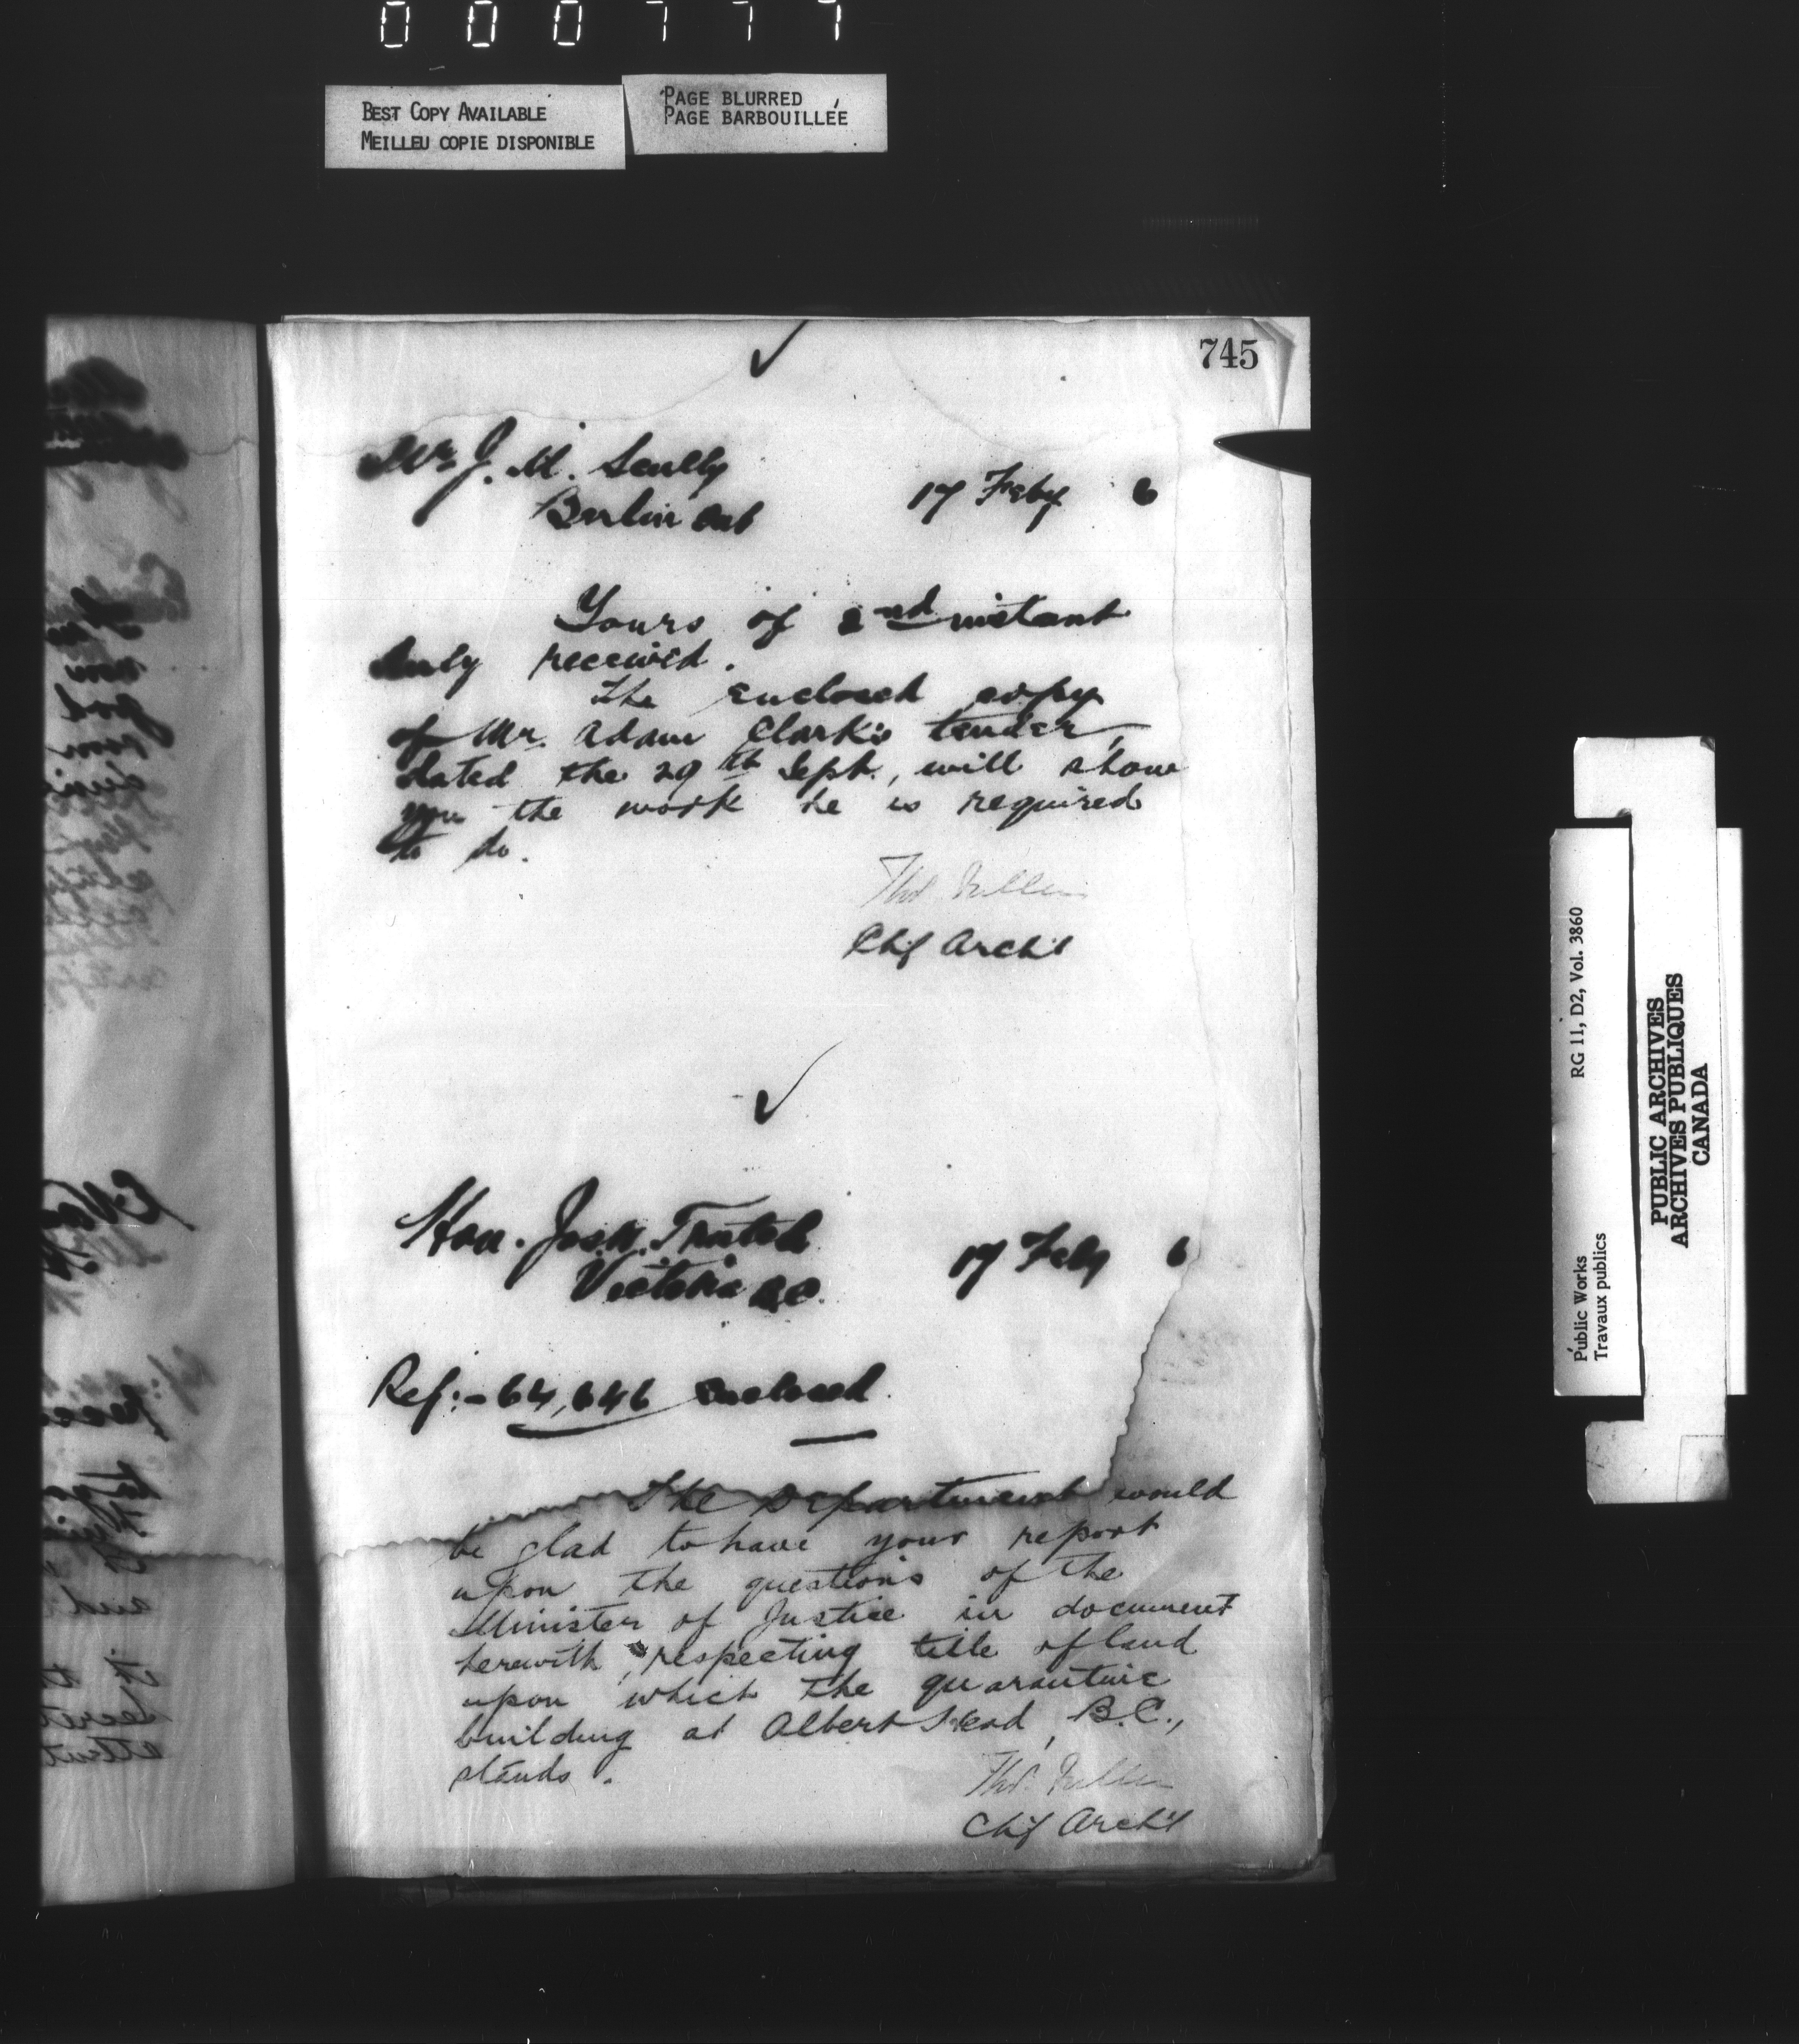 000777
BEST COPY AVAILABLE
MEILLEU COPIE DISPONIBLE
PAGE BLURRED
PAGE BARBOUILLÉE
745
Mr J. M. Scully
Berlin Ont
17 Feby 6
Yours of 2nd instant
duly received.
The enclosed copy
of Mr. Adam Clark's tender,
dated the 29th Sept., will show
you the work he is required
to do.
Thos Fuller
Chf Archt
Hon. Jos. W. Trutch
Victoria B.C.
17 Feby 6
Ref:- 64,646 enclosed.
The Department would
be glad to have your report
upon the questions of the
Minister of Justice in document
herewith, respecting title of land
upon which the quarantine
building at Albert Head, B.C.,
stands.
Thos. Fuller
Chf Archt
Public Works
Travaux publics
RG 11, D2, Vol. 3860
PUBLIC ARCHIVES
ARCHIVES PUBLIQUES
CANADA